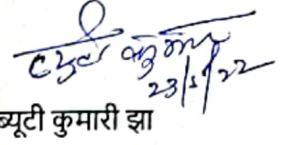 23/5/22
ब्यूटी कुमारी झा